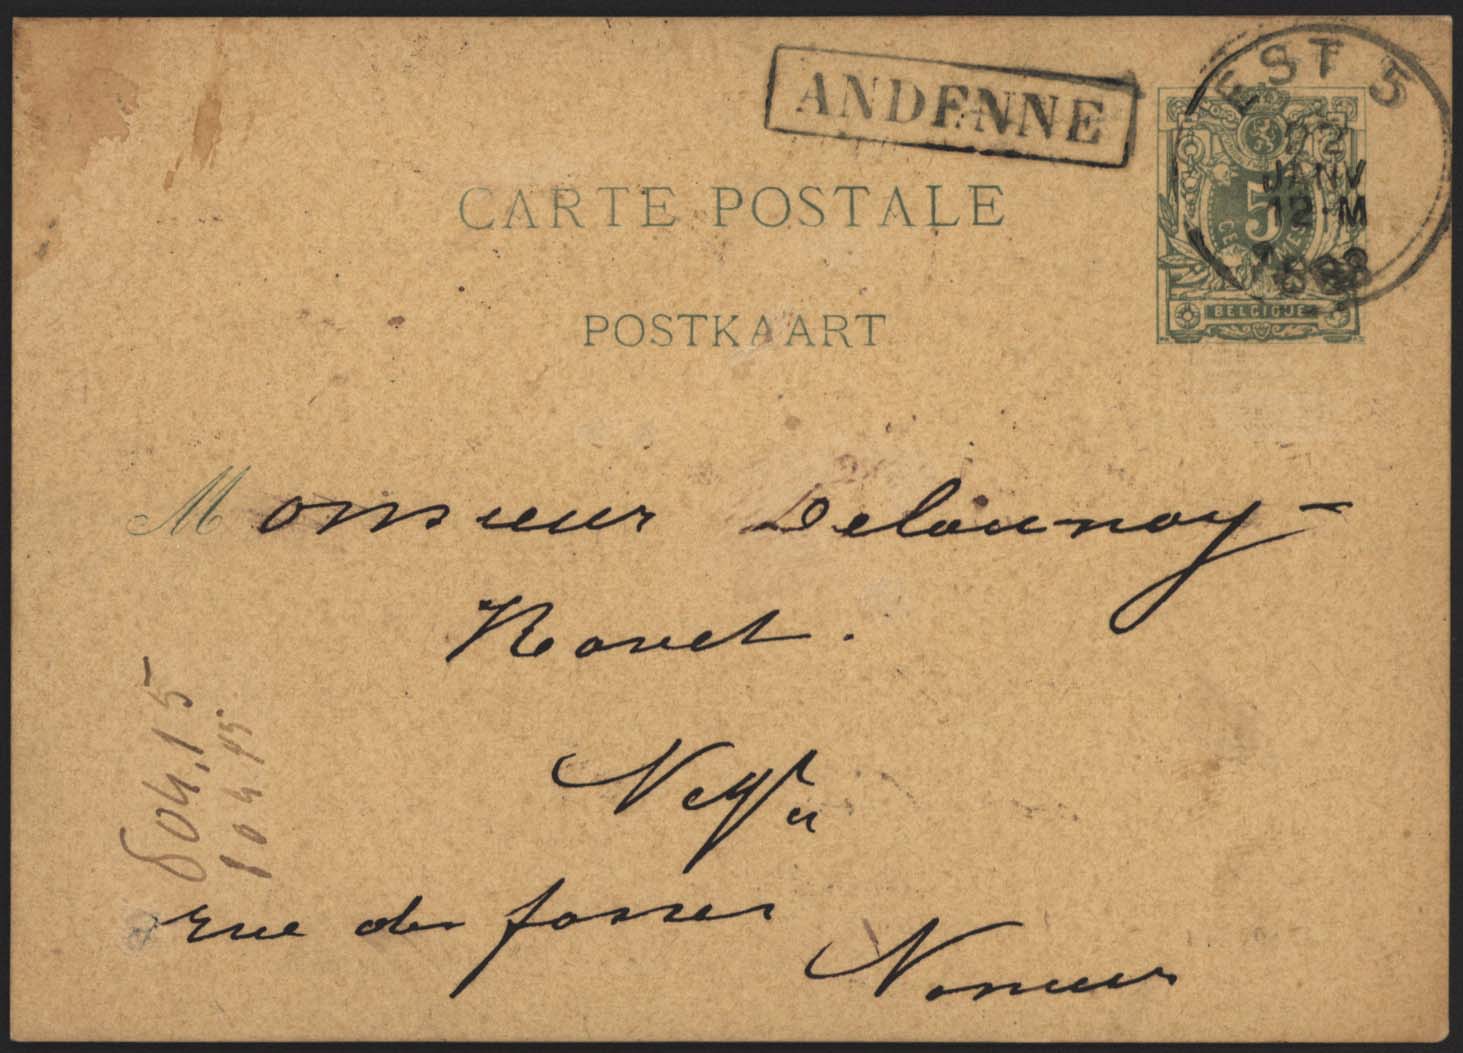 ANDENNE
EST 5
22
JANV
12-M
1888
5
CENTIMES
BELGIQUE
CARTE POSTALE
POSTKAART
Monsieur Delaunoy-
Havet.
Negt
rue des fosses
Namur
804.15
804.15